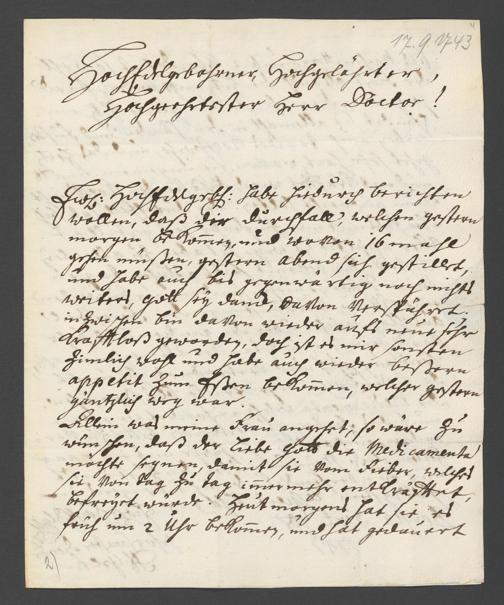 17.9.1743
HochEdelgebohrner, Hochgelährter,
Hochgeehrtester Herr Doctor!
Ew: HochEdelgeb: habe hiedurch berichten
wollen, daß der Durchfall, welchen gestern
morgen bekommen, und wovon 16 mahl
gehen müßen, gestern abend sich gestillet,
und habe auch bis gegenwärtig noch nichts
weiters, Gott sey danck, davon verspühret.
inzwischen bin davon wieder aufs neue sehr
krafftloß geworden, doch ist es mir sonsten
zimlich wohl und habe auch wieder beßern
appetit zum Eßen bekommen, welcher gestern
gäntzlich weg war.
Allein was meine Frau angehet, so wäre zu
wünschen, daß der liebe Gott die Medicamenta
möchte segnen, damit sie vom Fieber, welches
sie von tag zu tag immer mehr entkräfftet,
befreyet würde. Heut morgens hat sie es
früh um 2 Uhr bekommen, und hat gedauert
2)